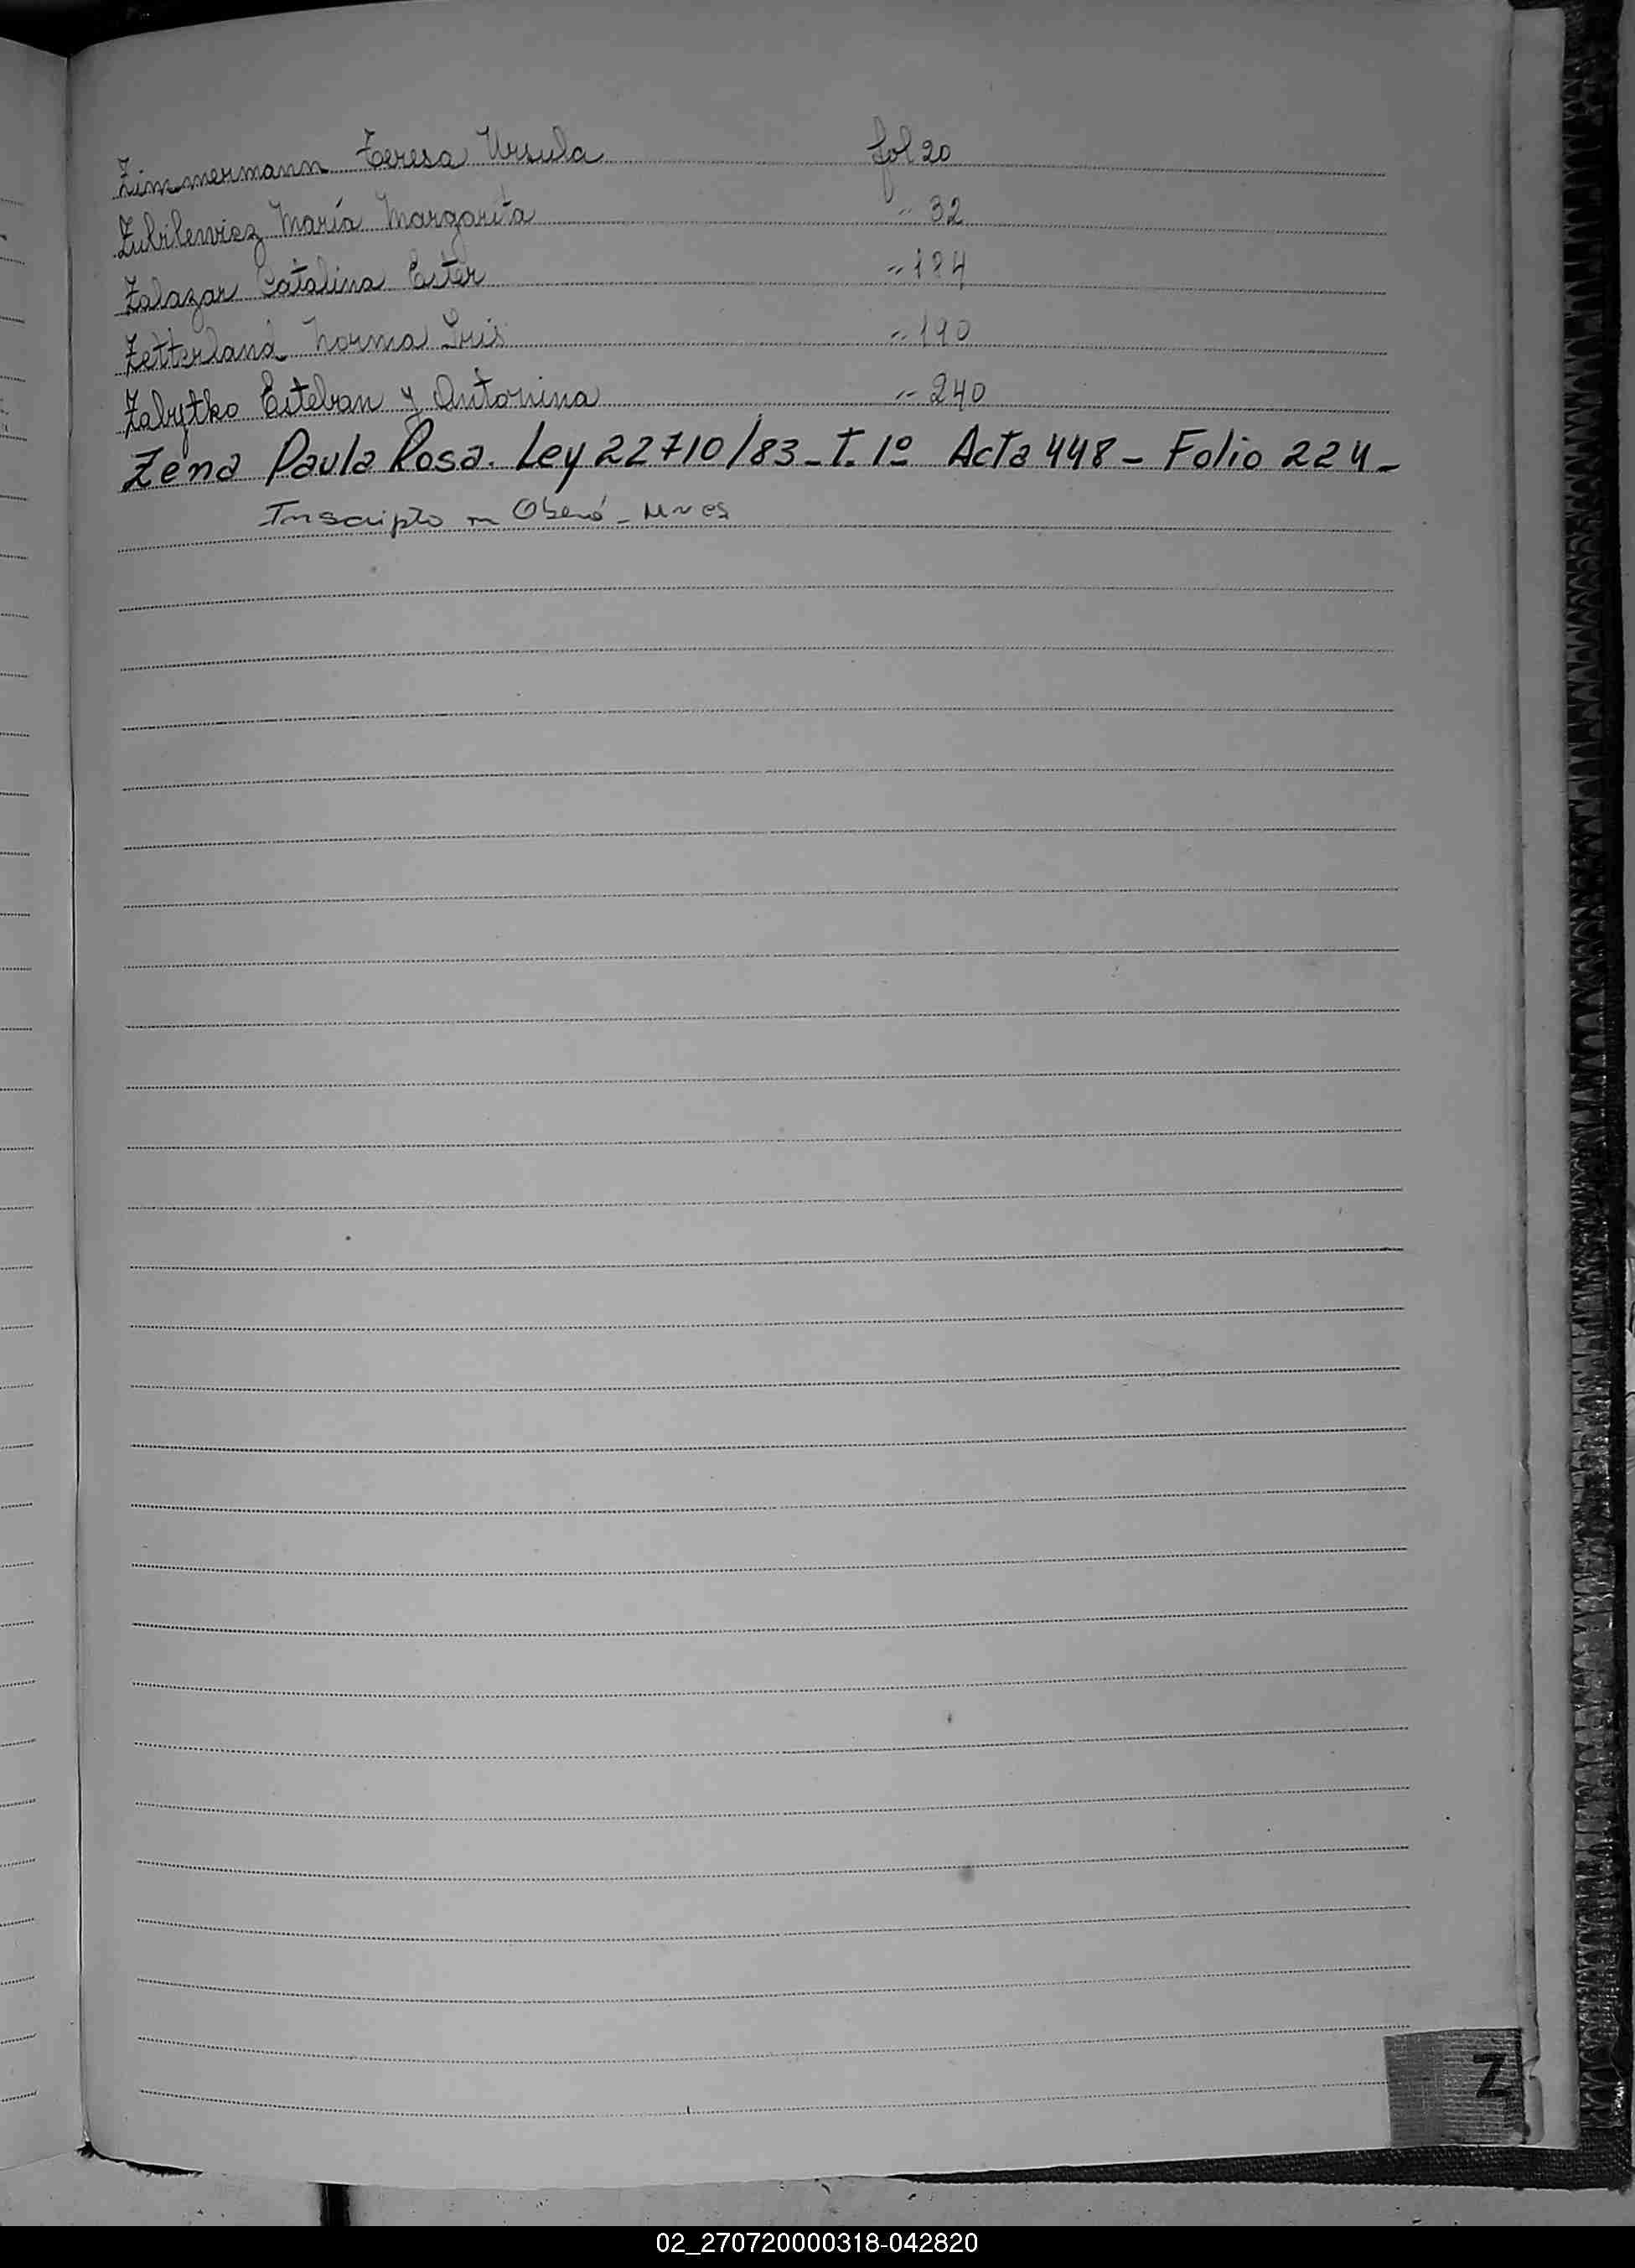 Zimmermann Teresa Ursula fol 20
Zubilewicz María Margarita " 32
Zalazar Catalina Ester " 184
Zetterland Norma Iris " 190
Zabytko Esteban y Antonina " 240
Zena Paula Rosa. Ley 22710/83 - T. 1º Acta 448 - Folio 224 -
Inscripto en Oberá - Mnes
Z
02_270720000318-042820